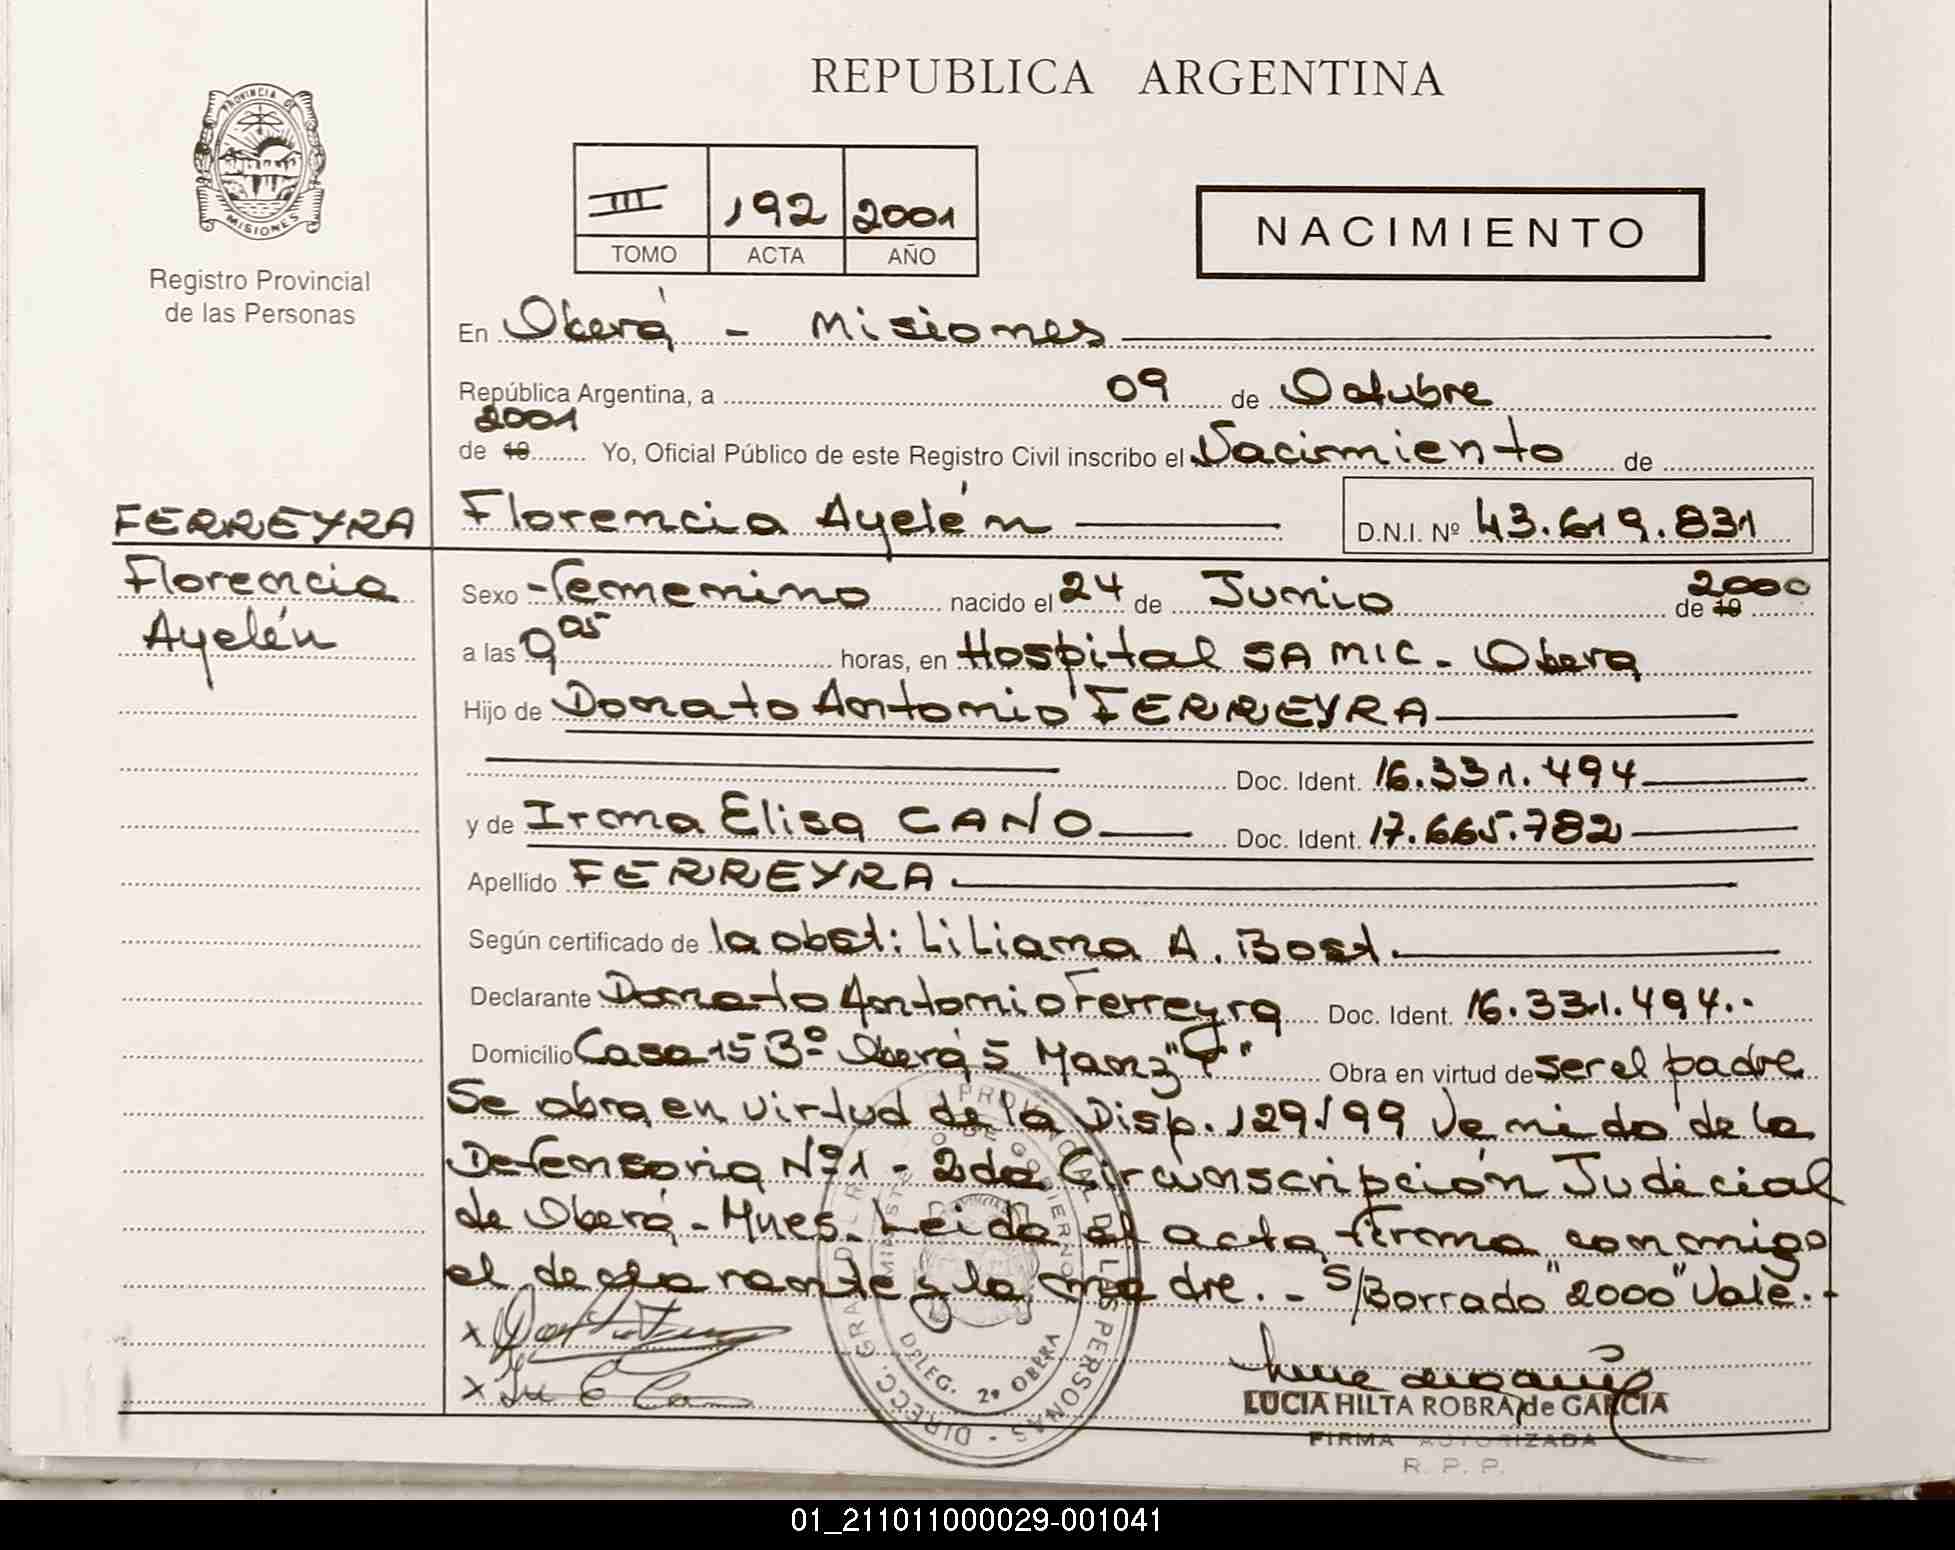 REPUBLICA ARGENTINA
PROVINCIA DE
MISIONES
Registro Provincial
de las Personas
III 192 2001
TOMO ACTA AÑO
NACIMIENTO
En Oberá - Misiones
República Argentina, a 09 de Octubre
2001
de 19 Yo, Oficial Público de este Registro Civil inscribo el Nacimiento de
FERREYRA
Florencia
Ayelén
Florencia Ayelén D.N.I. Nº 43.619.831
Sexo Femenino nacido el 24 de Junio de 19 2000
a las 9 05 horas, en Hospital SAMIC - Obera
Hijo de Donato Antonio FERREYRA
Doc. Ident. 16.331.494
y de Irma Elisa CANO Doc. Ident. 17.665.782
Apellido FERREYRA
Según certificado de la obst: Liliana A. Bost.
Declarante Donato Antonio Ferreyra Doc. Ident. 16.331.494..
Domicilio Casa 15 Bº Oberá 5 Manz Obra en virtud de ser el padre
Se obra en virtud de la Disp. 129/99 Venido de la
Defensoria Nº1 - 2da Circunscripción Judicial
de Oberá - Mnes. Leida el acta, firma conmigo
el declarante y la madre. - S/Borrado "2000" Vale.-
x
x
DELEG. 2º OBERA
LUCIA HILTA ROBRA de GARCIA
FIRMA AUTORIZADA
R. P. P.
01_211011000029-001041